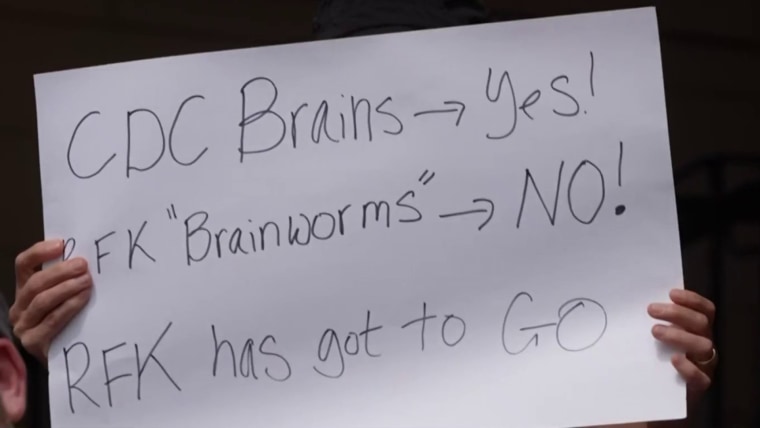 CDC Brains → Yes!
RFK "Brainworms" → NO!
RFK has got to GO